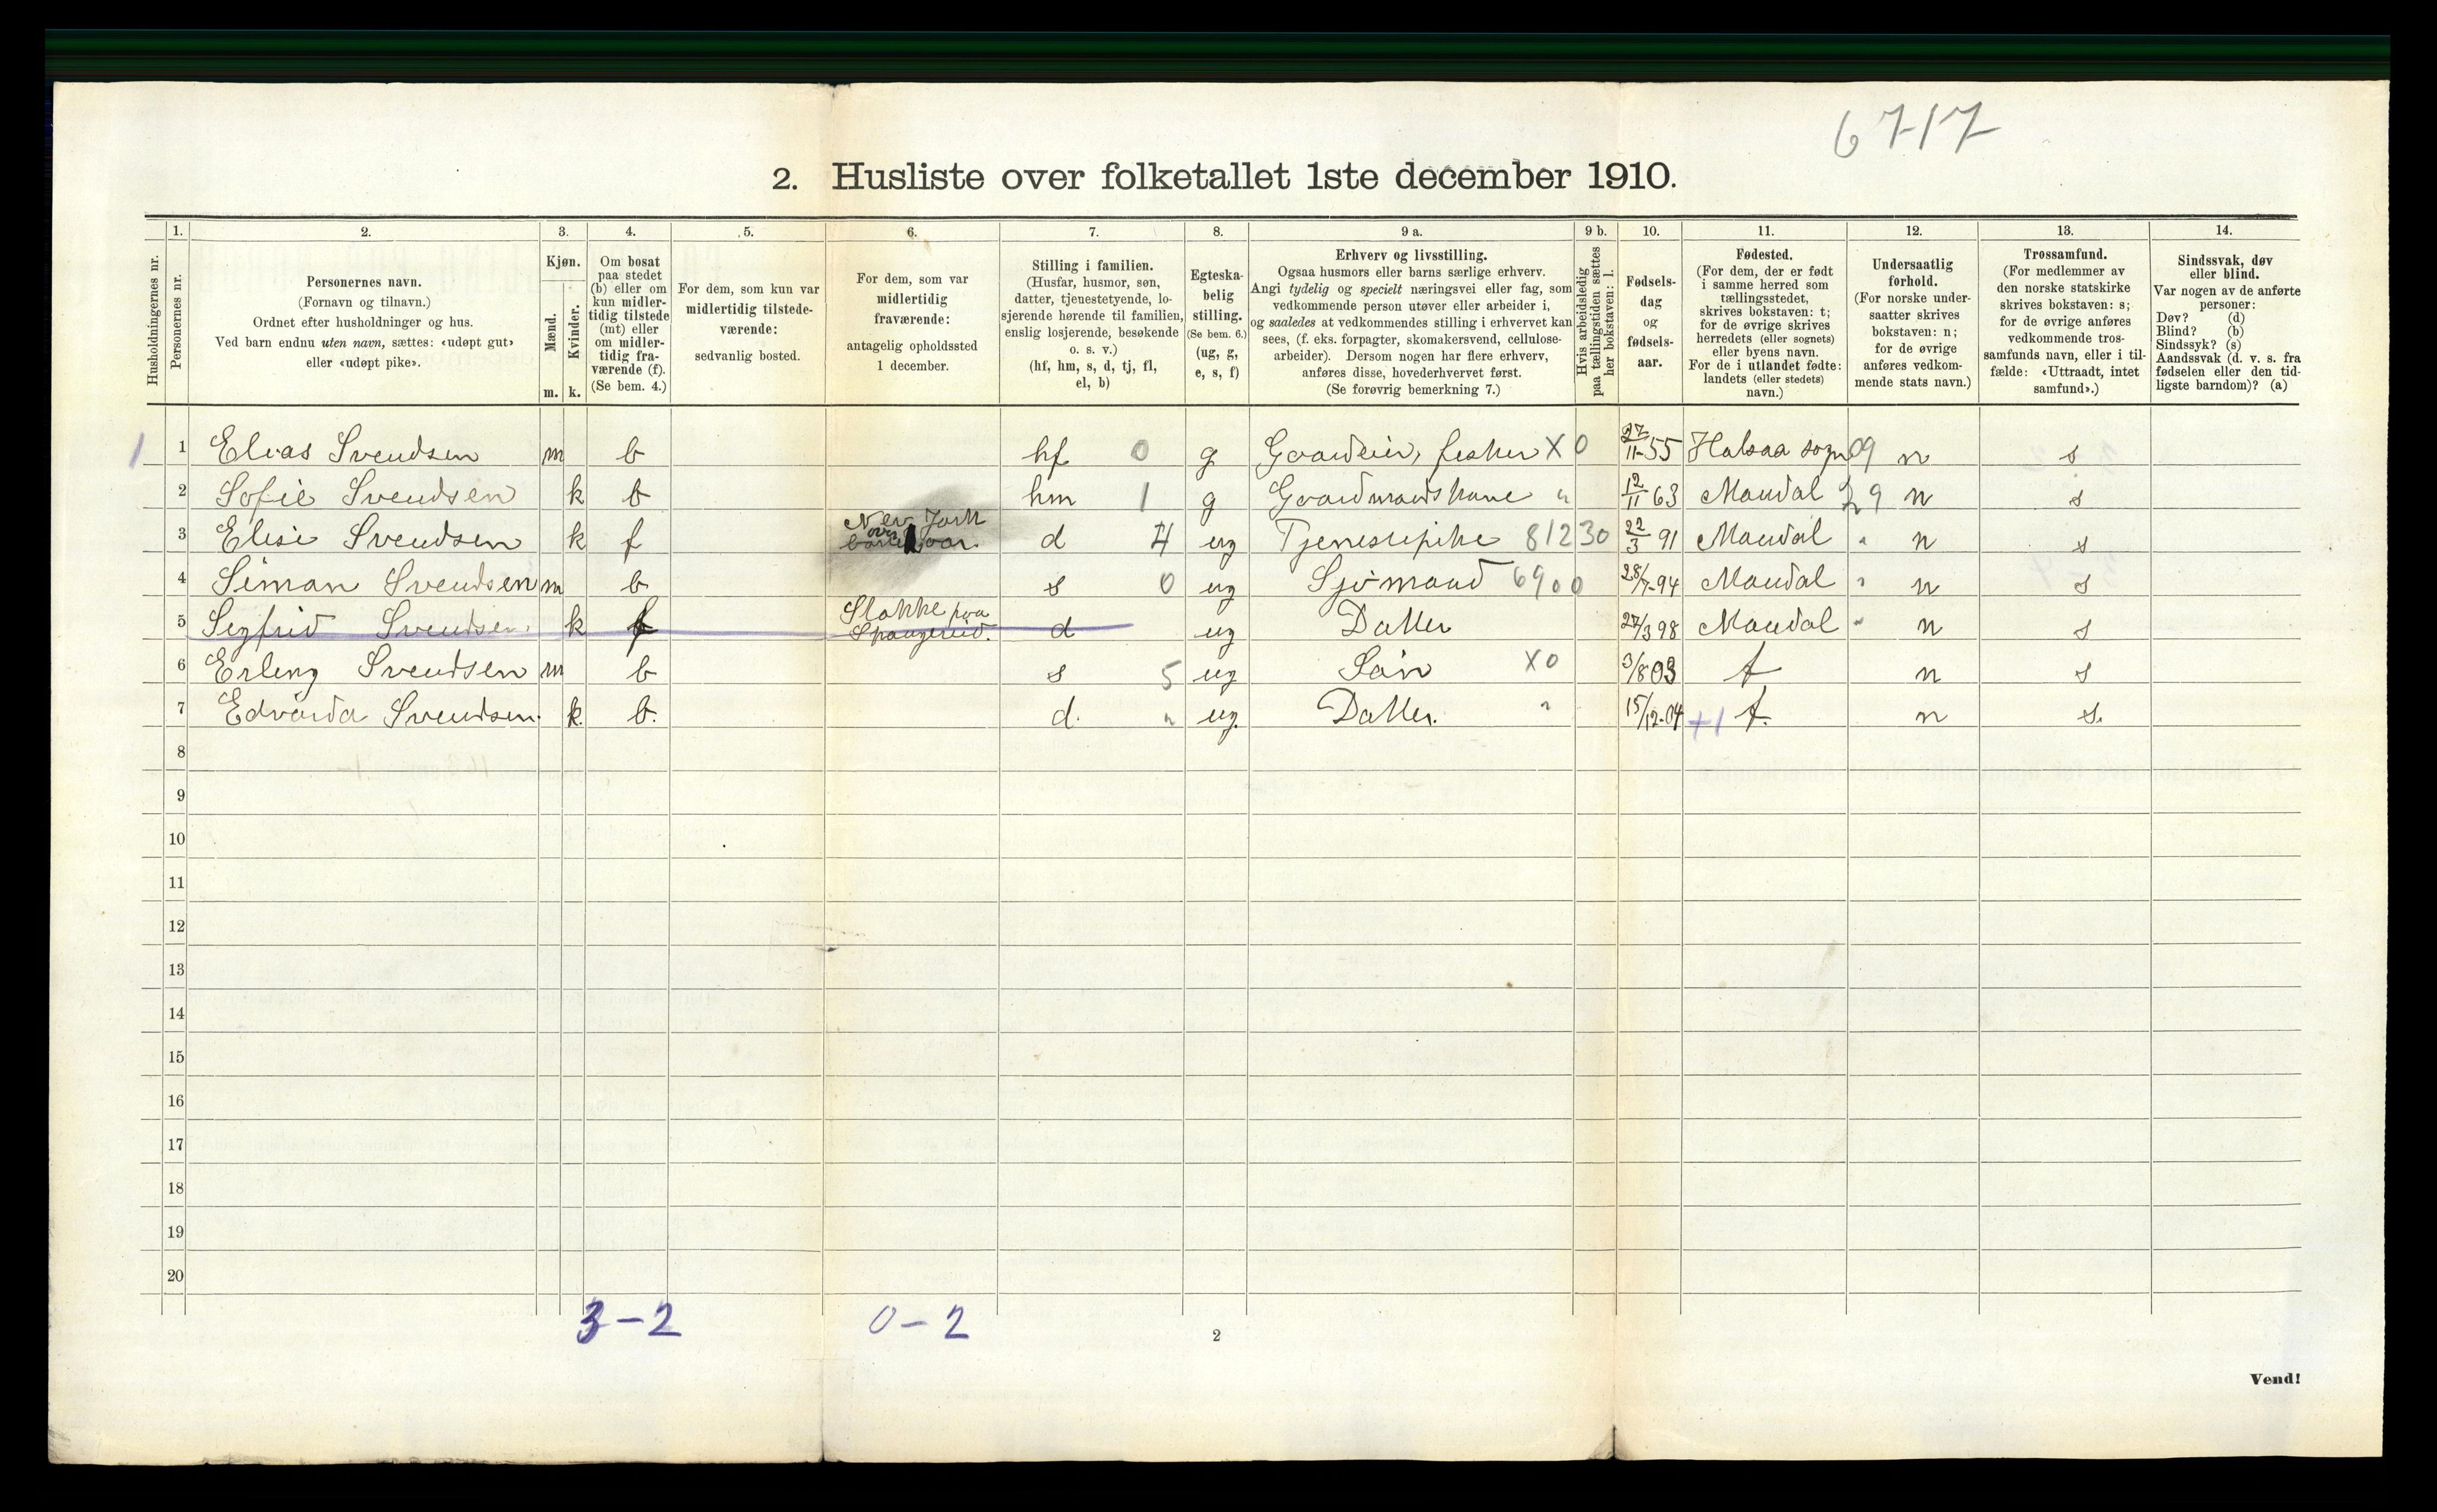 6717
2. Husliste over folketallet 1ste december 1910.
Husholdningernes nr.
1.
Personernes nr.
2.
Personernes navn.
(Fornavn og tilnavn.)
Ordnet efter husholdninger og hus.
Ved barn endnu uten navn, sættes: «udøpt gut»
eller «udøpt pike».
3.
Kjøn.
Mænd.
Kvinder.
m. k.
4.
Om bosat
paa stedet
(b) eller om
kun midler-
tidig tilstede
(mt) eller
om midler-
tidig fra-
værende (f).
(Se bem. 4.)
5.
For dem, som kun var
midlertidig tilstede-
værende:
sedvanlig bosted.
6.
For dem, som var
midlertidig
fraværende:
antagelig opholdssted
1 december.
7.
Stilling i familien.
(Husfar, husmor, søn,
datter, tjenestetyende, lo-
sjerende hørende til familien,
enslig losjerende, besøkende
o. s. v.)
(hf, hm, s, d, tj, fl,
el, b)
8.
Egteska-
belig
stilling.
(Se bem. 6.)
(ug, g,
e, s, f)
9 a.
Erhverv og livsstilling.
Ogsaa husmors eller barns særlige erhverv.
Angi tydelig og specielt næringsvei eller fag, som
vedkommende person utøver eller arbeider i,
og saaledes at vedkommendes stilling i erhvervet kan
sees, (f. eks. forpagter, skomakersvend, cellulose-
arbeider). Dersom nogen har flere erhverv,
anføres disse, hovederhvervet først.
(Se forøvrig bemerkning 7.)
9 b.
Hvis arbeidsledig
paa tællingstiden sættes
her bokstaven: l.
10.
Fødsels-
dag
og
fødsels-
aar.
11.
Fødested.
(For dem, der er født
i samme herred som
tællingsstedet,
skrives bokstaven: t;
for de øvrige skrives
herredets (eller sognets)
eller byens navn.
For de i utlandet fødte:
landets (eller stedets)
navn.)
12.
Undersaatlig
forhold.
(For norske under-
saatter skrives
bokstaven: n;
for de øvrige
anføres vedkom-
mende stats navn.)
13.
Trossamfund.
(For medlemmer av
den norske statskirke
skrives bokstaven: s;
for de øvrige anføres
vedkommende tros-
samfunds navn, eller i til-
fælde: «Uttraadt, intet
samfund».)
14.
Sindssvak, døv
eller blind.
Var nogen av de anførte
personer:
Døv? (d)
Blind? (b)
Sindssyk? (s)
Aandssvak (d. v. s. fra
fødselen eller den tid-
ligste barndom)? (a)
1 1 Elias Svendsen m b hf 0 g Gaardeier, fisker X0 27/11-55 Halsaa sogn 09 n s
2 Sofie Svendsen k b hm 1 g Gaardmandskone " 12/11 63 Mandal 9 n s
3 Elise Svendsen k f New York d 4 ug Tjenestepike 81230 22/3 91 Mandal " n s
4 Siman Svendsen m b s 0 ug Sjømand 6900 28/7-94 Mandal " n s
5 Sigfrid Svendsen k f Stokke paa Spangereid. d ug Datter 27/3 98 Mandal " n s
6 Erling Svendsen m b s 5 ug Søn X0 3/8 03 t n s
7 Edvarda Svendsen. k. b. d. " ug. Datter. " 15/12-04 +1 t. n s.
8
9
10
11
12
13
14
15
16
17
18
19
20
3-2 0-2
2
Vend!